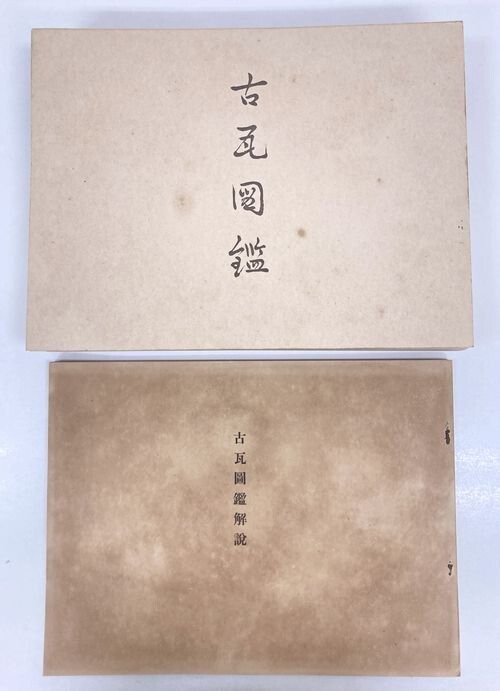 古瓦圖鑑
古瓦圖鑑解說